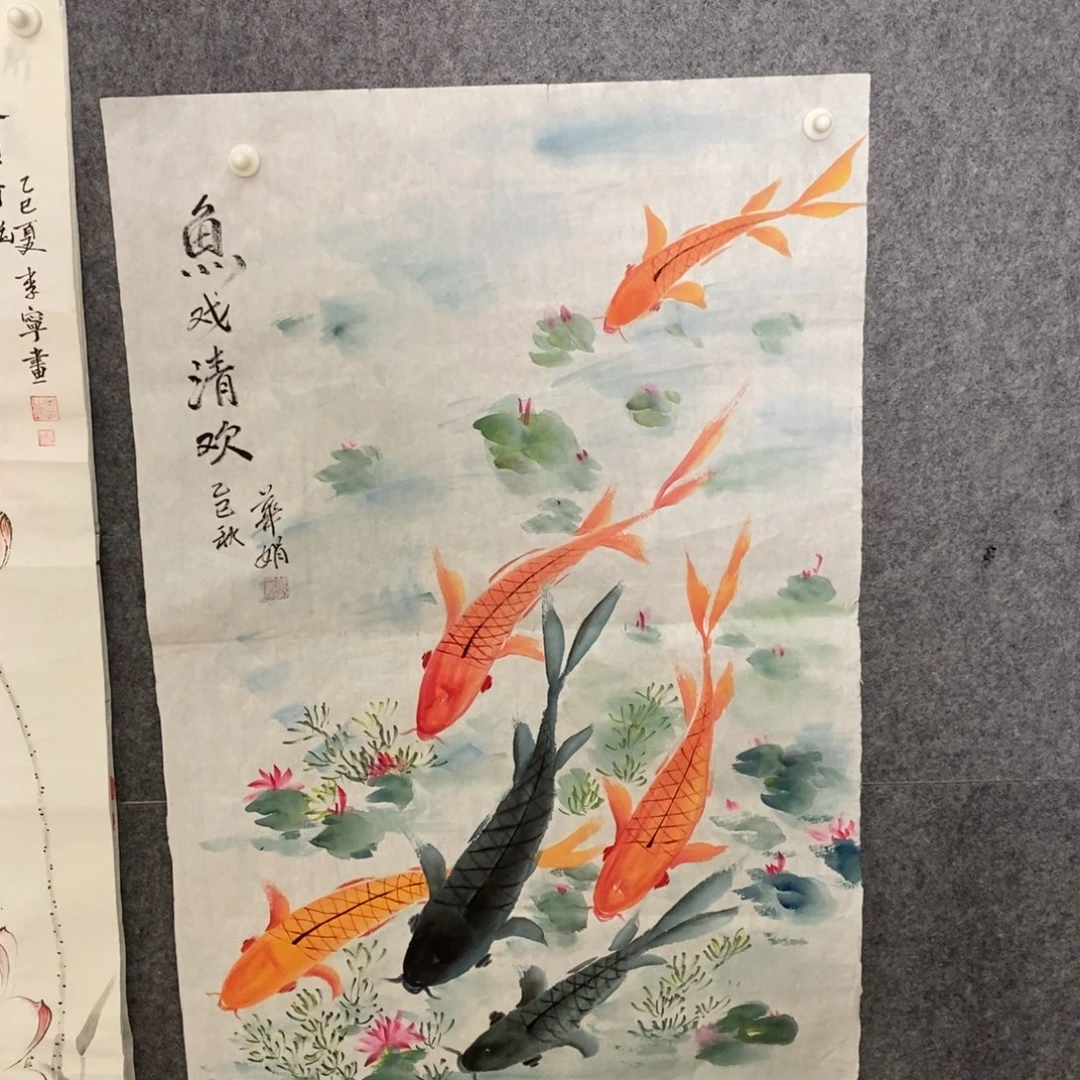 魚戏清欢
乙巳秋
华娟
乙巳夏 李寧畫